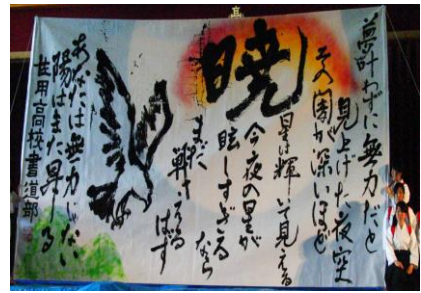 夢叶わずに無力だと
見上げた夜空
その闇が深いほど
暁
星は輝いて見える
今夜の星が
眩しすぎる なら
まだ
戦えるはず
あなたは無力じゃない
陽はまた昇る
高校書道部